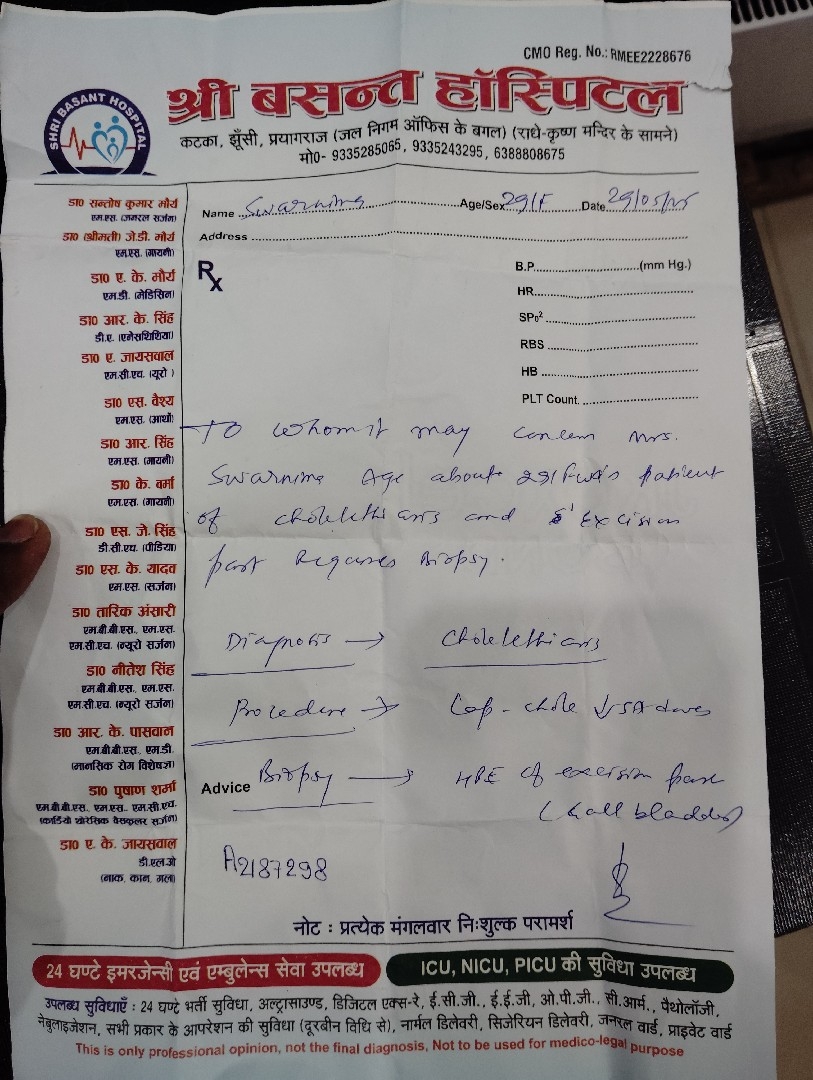 CMO Reg. No.: RMEE2228676
SHRI BASANT HOSPITAL
श्री बसन्त हॉस्पिटल
कटका, झूँसी, प्रयागराज (जल निगम ऑफिस के बगल) (राधे-कृष्ण मन्दिर के सामने)
मो0- 9335285065, 9335243295, 6388808675
डा0 सन्तोष कुमार मौर्य
एम.एस. (जनरल सर्जन)
डा0 (श्रीमती) जे.डी. मौर्य
एम.एस. (गायनी)
डा0 ए. के. मौर्य
एम.डी. (मेडिसिन)
डा0 आर. के. सिंह
डी.ए. (एनेसथिसिया)
डा0 ए. जायसवाल
एम.सी.एच. (यूरो )
डा0 एस. वैश्य
एम.एस. (आर्थो)
डा0 आर. सिंह
एम.एस. (गायनी)
डा0 के. वर्मा
एम.एस. (गायनी)
डा0 एस. जे. सिंह
डी.सी.एच. (पीडिया)
डा0 एस. के. यादव
एम.एस. (सर्जन)
डा0 तारिक अंसारी
एम.बी.बी.एस., एम.एस.
एम.सी.एच. (न्यूरो सर्जन)
डा0 नीतेश सिंह
एम.बी.बी.एस., एम.एस.
एम.सी.एच. (न्यूरो सर्जन)
डा0 आर. के. पासवान
एम.बी.बी.एस., एम.डी.
(मानसिक रोग विशेषज्ञ)
डा0 पुषाण शर्मा
एम.बी.बी.एस., एम.एस., एम.सी.एच.
(कार्डियो थोरेसिक वैसकुलर सर्जन)
डा0 ए. के. जायसवाल
डी.एल.ओ
(नाक, कान, गला)
Name Swarnima Age/Sex 29/F Date 29/05/25
Address
Rx
B.P. (mm Hg.)
HR
SPo2
RBS
HB
PLT Count.
To whom it may concern Mrs.
Swarnima Age about 29/F was patient
of cholelethiasis and Excision
part Requires Biopsy.
Diagnosis → Cholelethiasis
Procedure → Lap-chole
Advice Biopsy → HPE of excision part
(Gall bladder)
A2187298
नोट : प्रत्येक मंगलवार निःशुल्क परामर्श
24 घण्टे इमरजेन्सी एवं एम्बुलेन्स सेवा उपलब्ध
ICU, NICU, PICU की सुविधा उपलब्ध
उपलब्ध सुविधाएँ : 24 घण्टे भर्ती सुविधा, अल्ट्रासाउण्ड, डिजिटल एक्स-रे, ई.सी.जी., ई.ई.जी., ओ.पी.जी., सी.आर्म., पैथोलॉजी,
नेबुलाइजेशन, सभी प्रकार के आपरेशन की सुविधा (दूरबीन विधि से), नार्मल डिलेवरी, सिजेरियन डिलेवरी, जनरल वार्ड, प्राइवेट वार्ड
This is only professional opinion, not the final diagnosis, Not to be used for medico-legal purpose